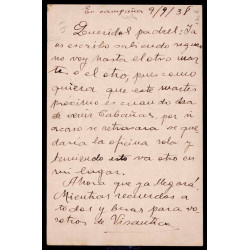 En campaña 9/9/38
Queridos padres: Ya
os escribo saliendo seguro
no voy hasta el otro mar
tes o el otro, pues como
quiera que este martes
proximo es cuando ha
de venir Cabañas, por si
acaso se retrasara se que
daria la oficina sola y
teniendo esto va otro en
mi lugar.
Ahora que ya llegará.
Mientras recuerdos a
todos y besos para vo
sotros de Visantica